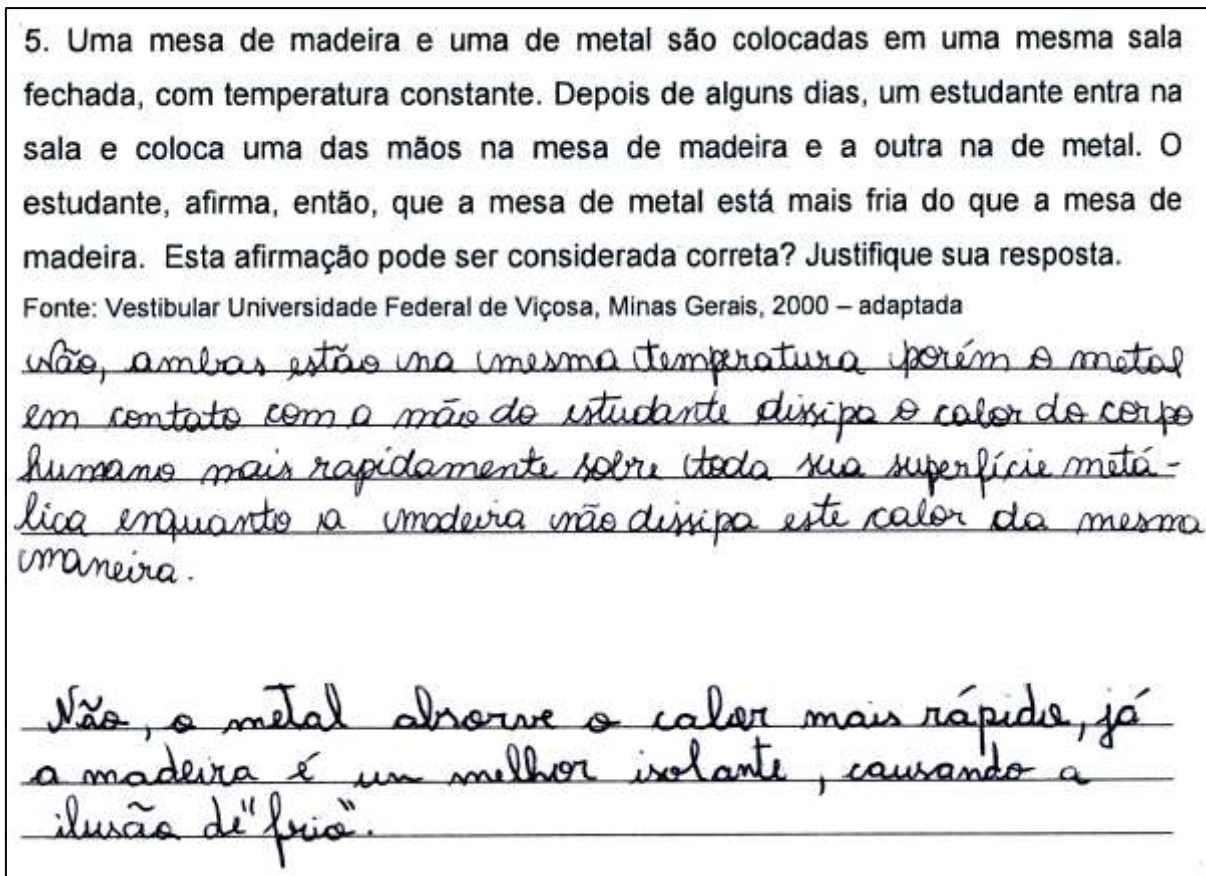 5. Uma mesa de madeira e uma de metal são colocadas em uma mesma sala
fechada, com temperatura constante. Depois de alguns dias, um estudante entra na
sala e coloca uma das mãos na mesa de madeira e a outra na de metal. O
estudante, afirma, então, que a mesa de metal está mais fria do que a mesa de
madeira. Esta afirmação pode ser considerada correta? Justifique sua resposta.
Fonte: Vestibular Universidade Federal de Viçosa, Minas Gerais, 2000 – adaptada
Não, ambas estão na mesma temperatura porém o metal
em contato com a mão do estudante dissipa o calor do corpo
humano mais rapidamente sobre toda sua superfície metá-
lica enquanto a madeira não dissipa este calor da mesma
maneira.
Não, o metal absorve o calor mais rápido, já
a madeira é um melhor isolante, causando a
ilusão de "frio".